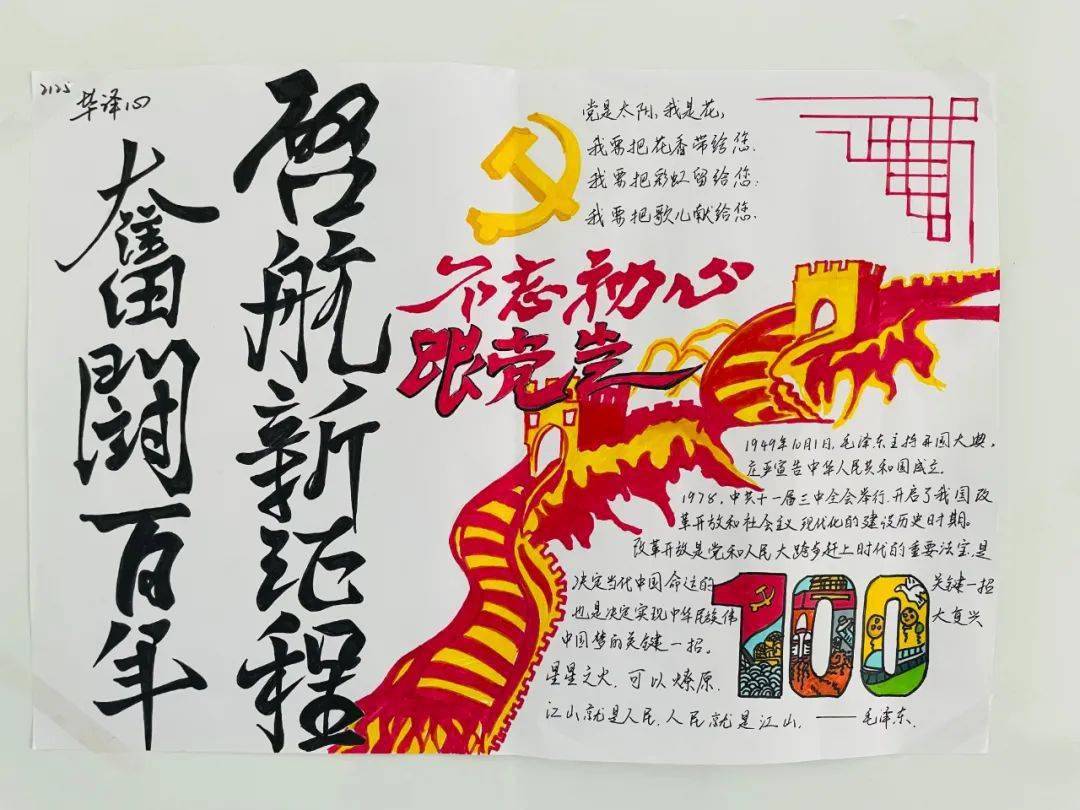 2125
毕译心
奋鬪百年
启航新征程
党是太阳,我是花,
我要把花香带给您.
我要把彩虹留给您;
我要把歌儿献给您.
不忘初心
跟党走
1949年10月1日,毛泽东主持开国大典,
庄严宣告中华人民共和国成立.
1978,中共十一届三中全会举行,开启了我国改
革开放和社会主义现代化的建设历史时期。
改革开放是党和人民大踏步赶上时代的重要法宝,是
决定当代中国命运的 关键一招
也是决定实现中华民族伟 大复兴
中国梦的关键一招。
100
星星之火,可以燎原.
江山就是人民,人民就是江山.——毛泽东.